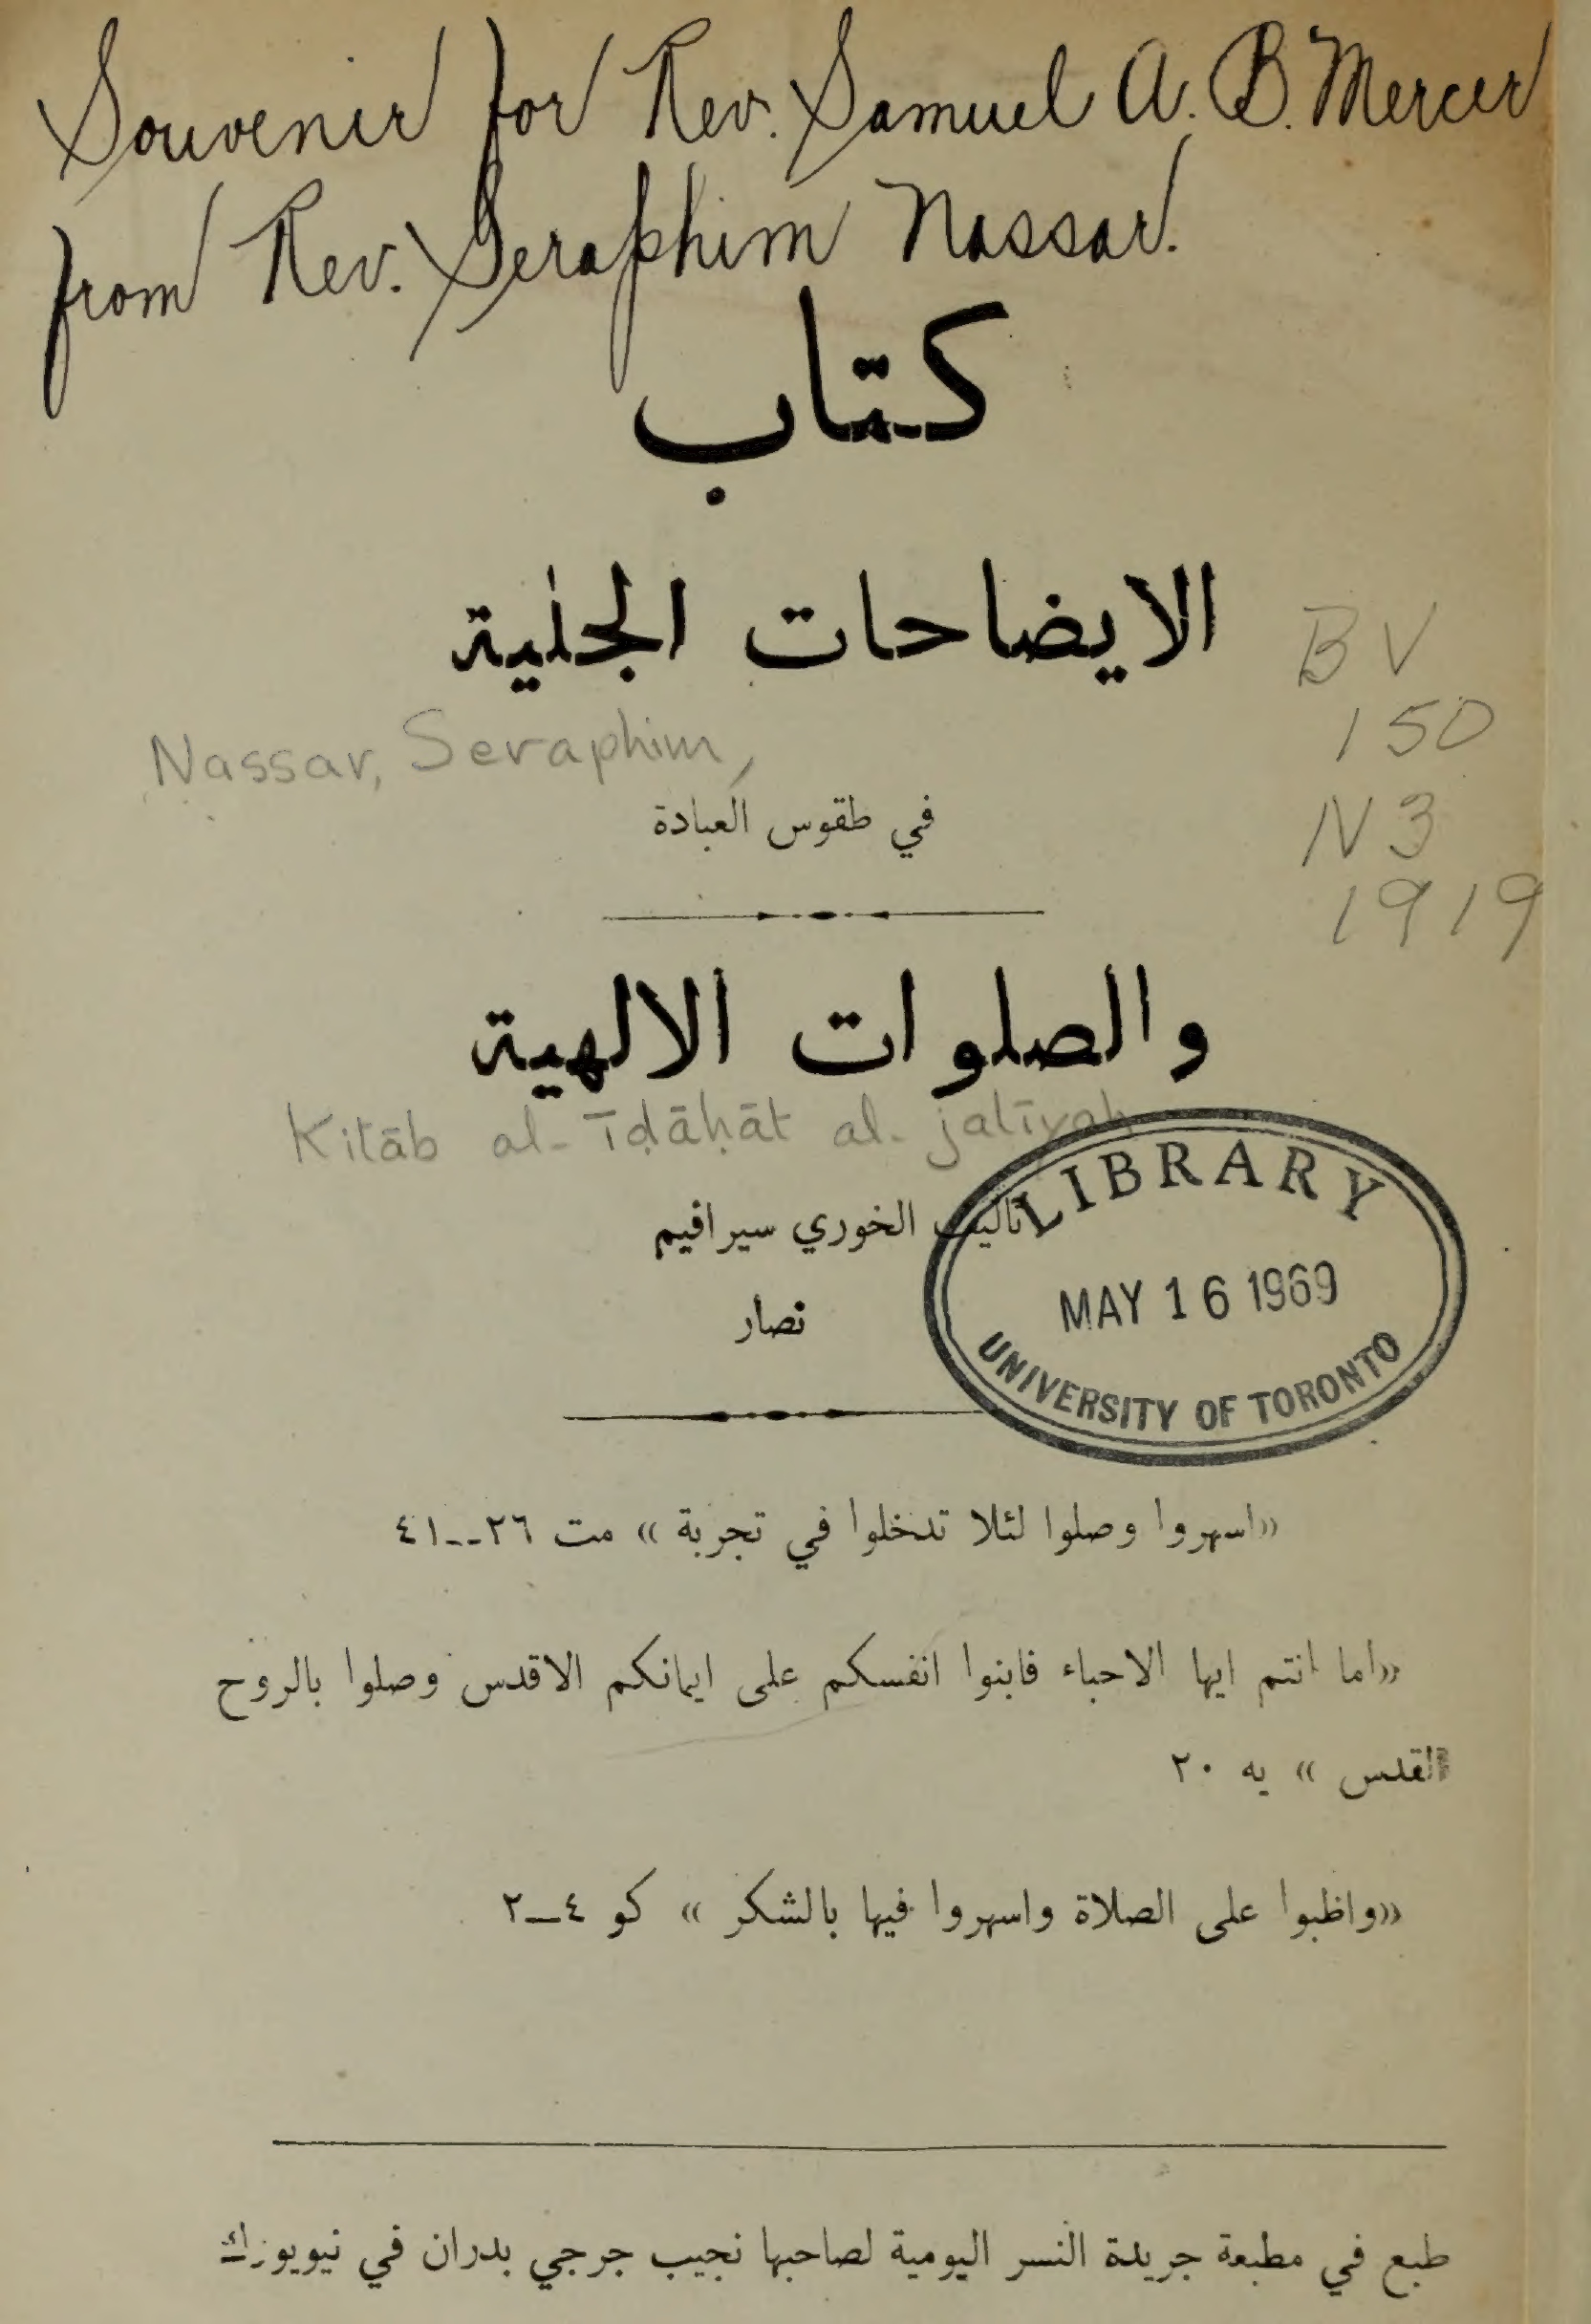 Souvenir for Rev. Samuel A. B. Mercer
from Rev. Seraphim Nassar.
كتاب
الايضاحات الجلية
BV
150
N3
1919
Nassar, Seraphim,
في طقوس العبادة
والصلوات الالهية
Kitāb al-īḍāḥāt al-jalīyah
تاليف الخوري سيرافيم
نصار
LIBRARY
MAY 16 1969
UNIVERSITY OF TORONTO
«اسهروا وصلوا لئلا تدخلوا في تجربة» مت ٢٦--٤١
«اما انتم ايها الاحباء فابنوا انفسكم على ايمانكم الاقدس وصلوا بالروح
القدس» يه ٢٠
«واظبوا على الصلاة واسهروا فيها بالشكر» كو ٤—٢
طبع في مطبعة جريدة النسر اليومية لصاحبها نجيب جرجي بدران في نيويورك